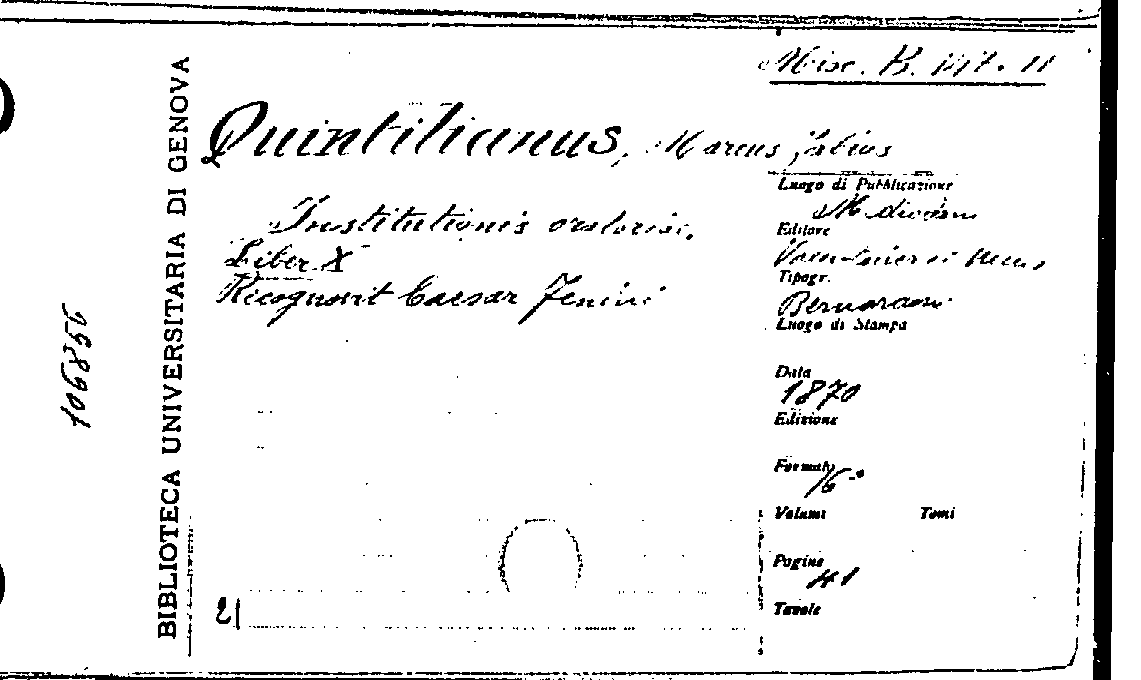 Misc. B.
Quintilianus, Marcus Fabius
Institutionis oratoriae,
Liber X
Recognovit Caesar Fenini
Luogo di Pubblicazione
Editore
Tipogr.
Bernardoni
Luogo di Stampa
Data
1870
Edizione
Formato
16°
Volumi Tomi
Pagine
41
Tavole
21
BIBLIOTECA UNIVERSITARIA DI GENOVA
106856